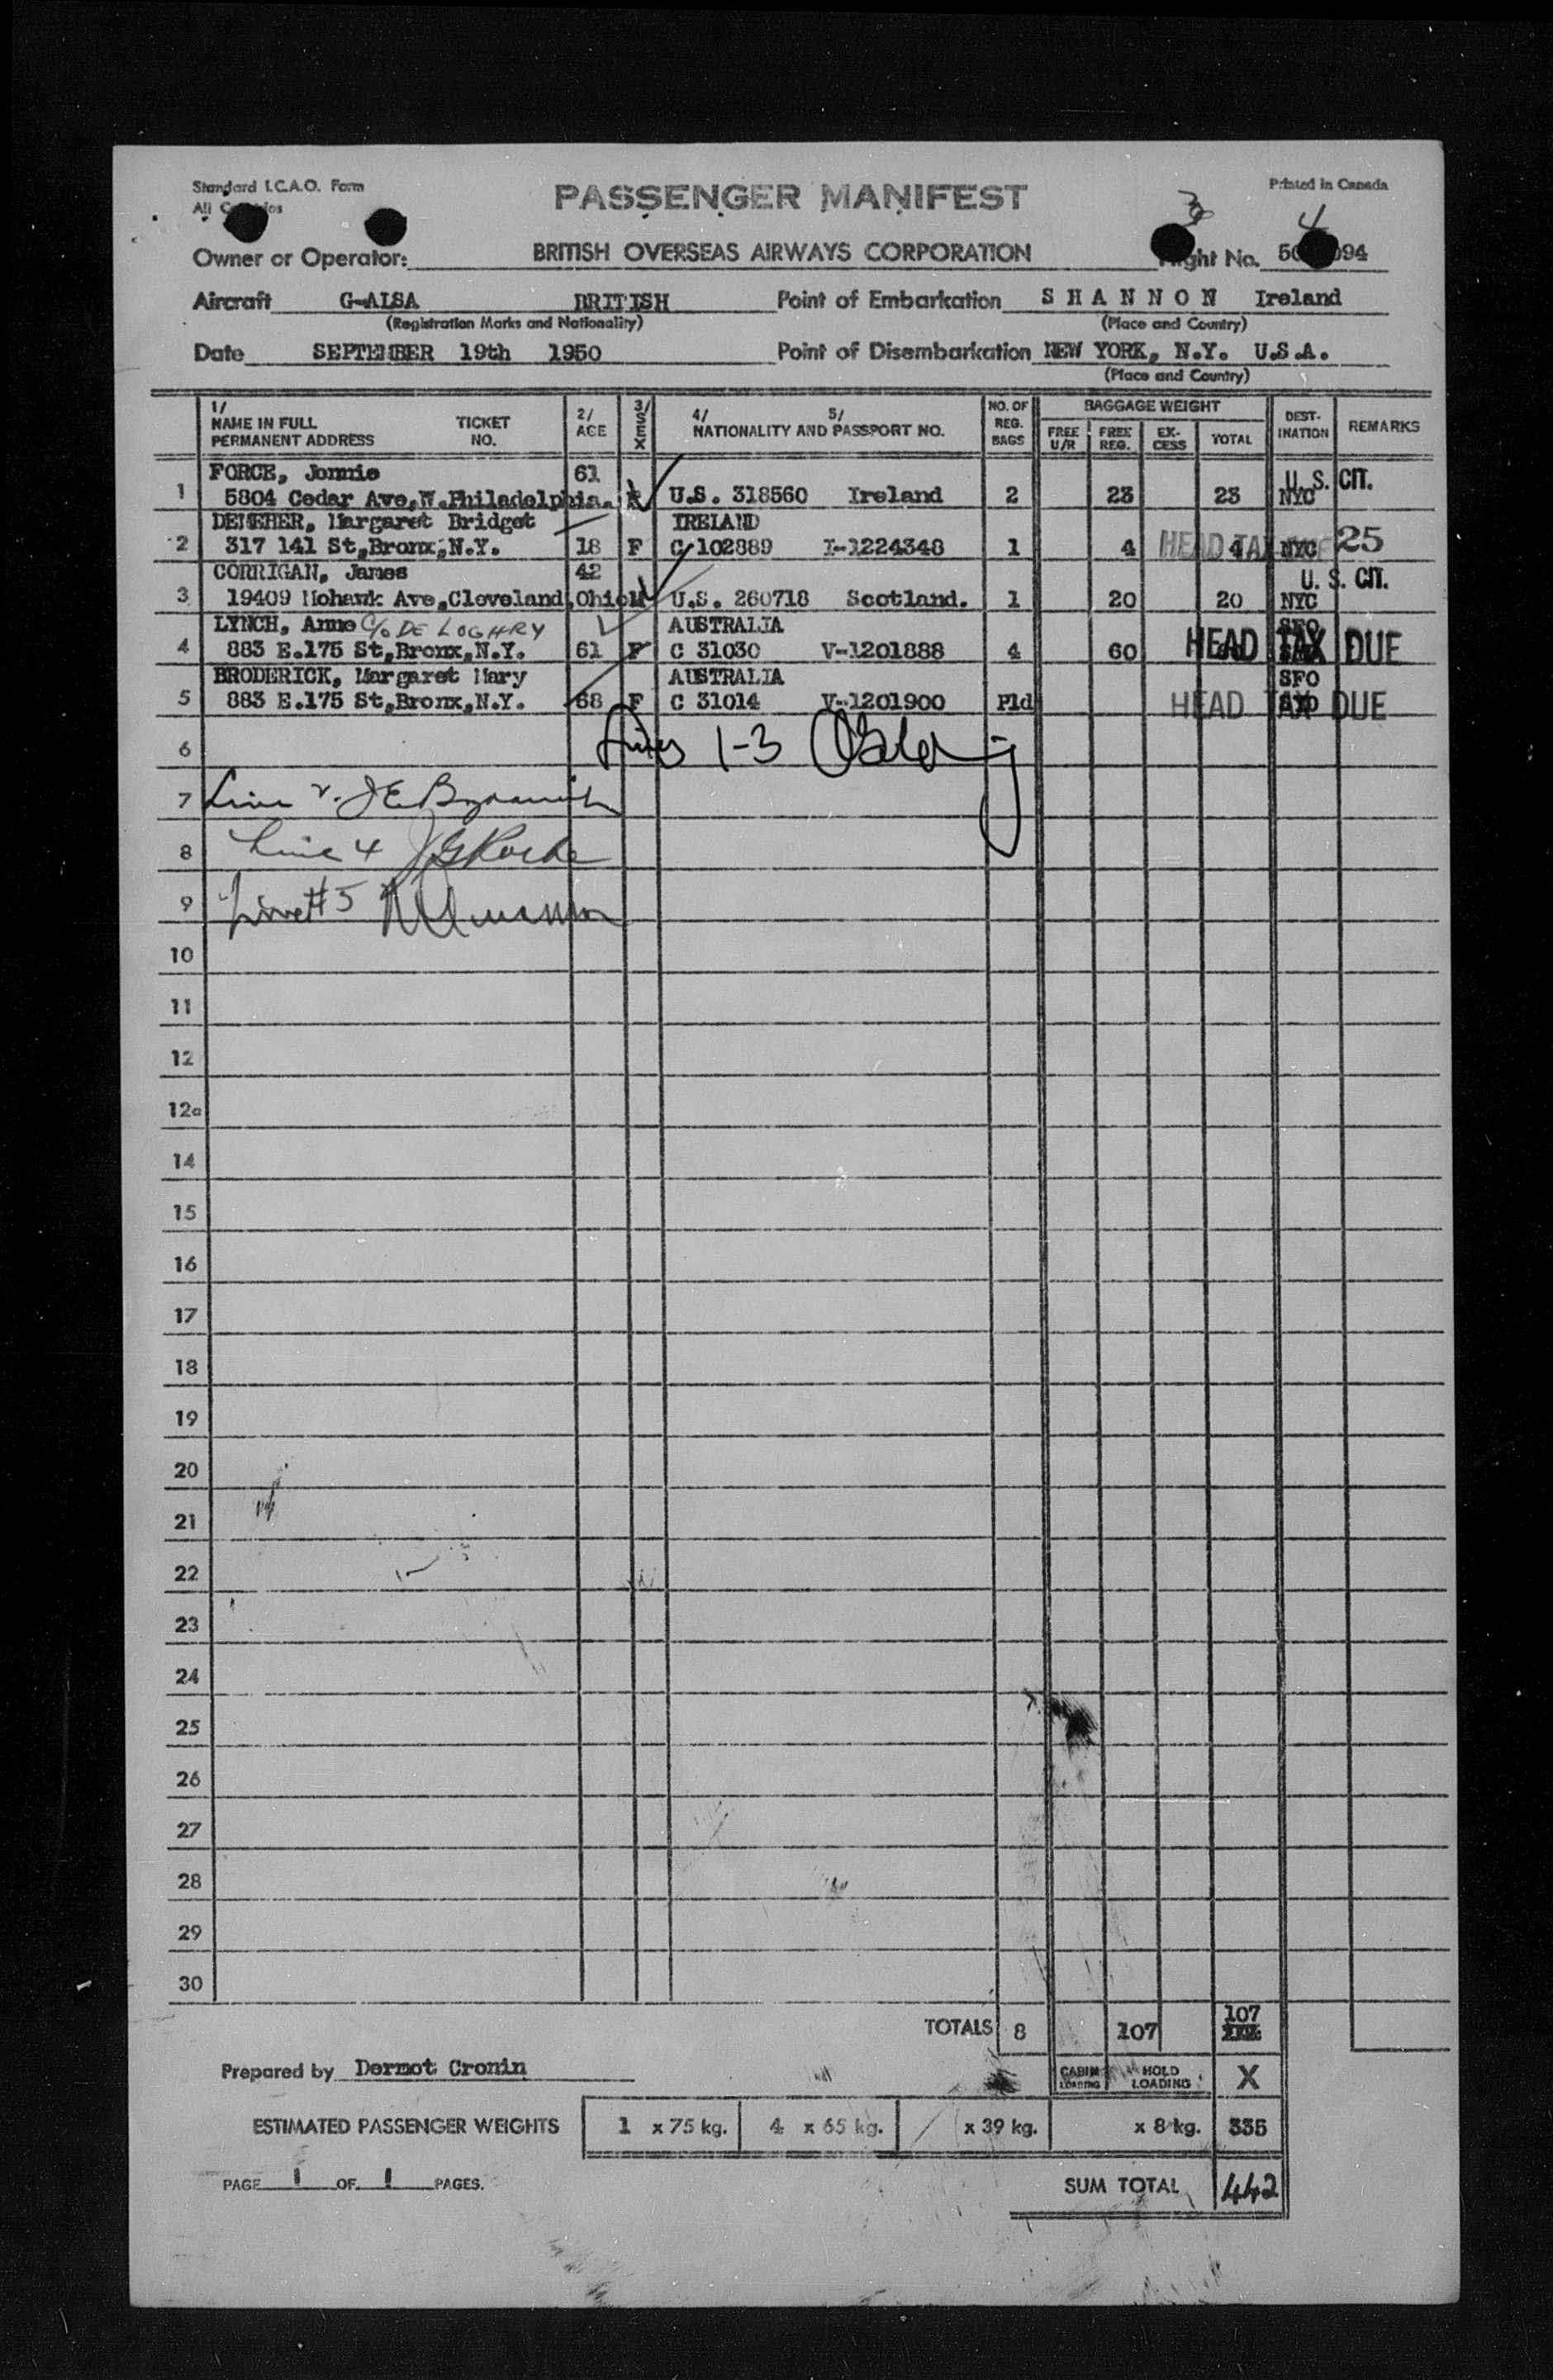 Standard I.C.A.O. Form
PASSENGER MANIFEST
Printed in Canada
All
4
Owner or Operator: BRITISH OVERSEAS AIRWAYS CORPORATION No. 094
Aircraft G-ALSA BRITISH Point of Embarkation SHANNON Ireland
(Registration Marks and Nationality) (Place and Country)
Date SEPTEMBER 19th 1950 Point of Disembarkation NEW YORK, N.Y. U.S.A.
(Place and Country)
1/ NAME IN FULL PERMANENT ADDRESS TICKET NO. 2/ AGE 3/ SEX 4/ 5/ NATIONALITY AND PASSPORT NO. NO. OF REG. BAGS BAGGAGE WEIGHT FREE U/R FREE REG. EX-CESS TOTAL DEST-INATION REMARKS
FORCE, Jonnie 61 U.S. CIT.
1 5804 Cedar Ave,W.Philadelphia. U.S. 318560 Ireland 2 23 23 NYC
DENEHER, Margaret Bridget IRELAND
2 317 141 St,Bronx,N.Y. 18 F C 102889 I-1224348 1 4 HEAD TAX 4 NYC 25
CORRIGAN, James 42 U.S. CIT.
3 19409 Mohawk Ave,Cleveland,Ohio M U.S. 260718 Scotland. 1 20 20 NYC
LYNCH, Anne C/o DE LOGHRY AUSTRALIA SFO
4 883 E.175 St,Bronx,N.Y. 61 F C 31030 V-1201888 4 60 HEAD TAX DUE
BRODERICK, Margaret Mary AUSTRALIA SFO
5 883 E.175 St,Bronx,N.Y. 68 F C 31014 V-1201900 Pld HEAD TAX DUE
6 Lines 1-3
7 Line 2. J E
8 Line 4 J G Roche
9 Line #5
10
11
12
12a
14
15
16
17
18
19
20
21
22
23
24
25
26
27
28
29
30
TOTALS 8 107 107
Prepared by Dermot Cronin CABIN LOADING HOLD LOADING X
ESTIMATED PASSENGER WEIGHTS 1 x 75 kg. 4 x 65 kg. x 39 kg. x 8 kg. 335
PAGE 1 OF 1 PAGES. SUM TOTAL 442